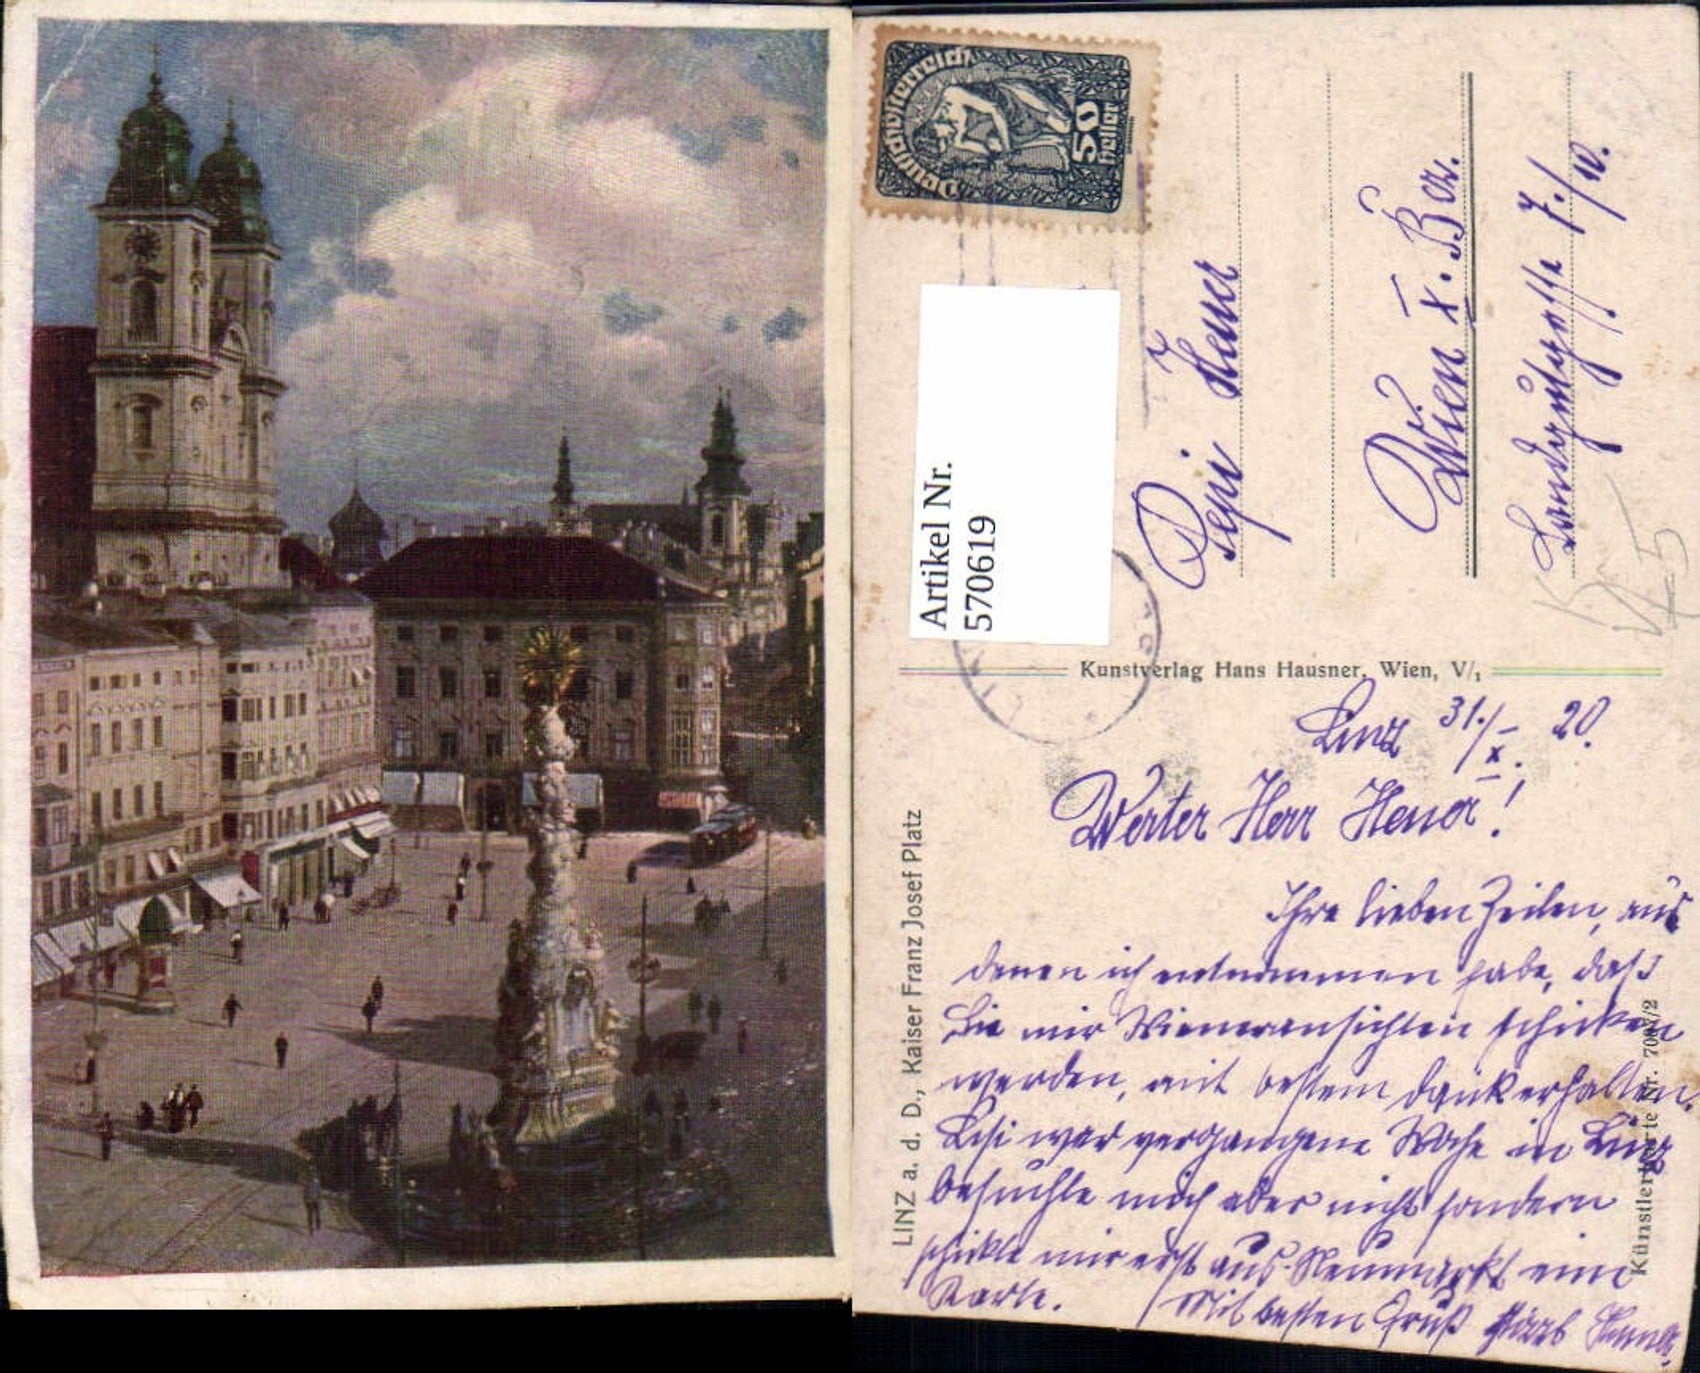 Deutschösterreich
50
heller
Artikel Nr.
570619
Pepi Heuer
Wien X. Bez.
7./10.
Kunstverlag Hans Hausner, Wien, V/1
LINZ a. d. D., Kaiser Franz Josef Platz
Künstlerkarte Nr.
Linz 31./X. 20.
Werter Herr Heuer!
Ihre lieben Zeilen, aus
denen ich entnommen habe, daß
Sie mir Wieneransichten schicken
werden, mit bestem Dank erhalten.
war vergangene Woche in Linz
besuchte mich aber nicht sondern
schickte mir erst aus Neumarkt eine
Karte. Mit besten Gruß